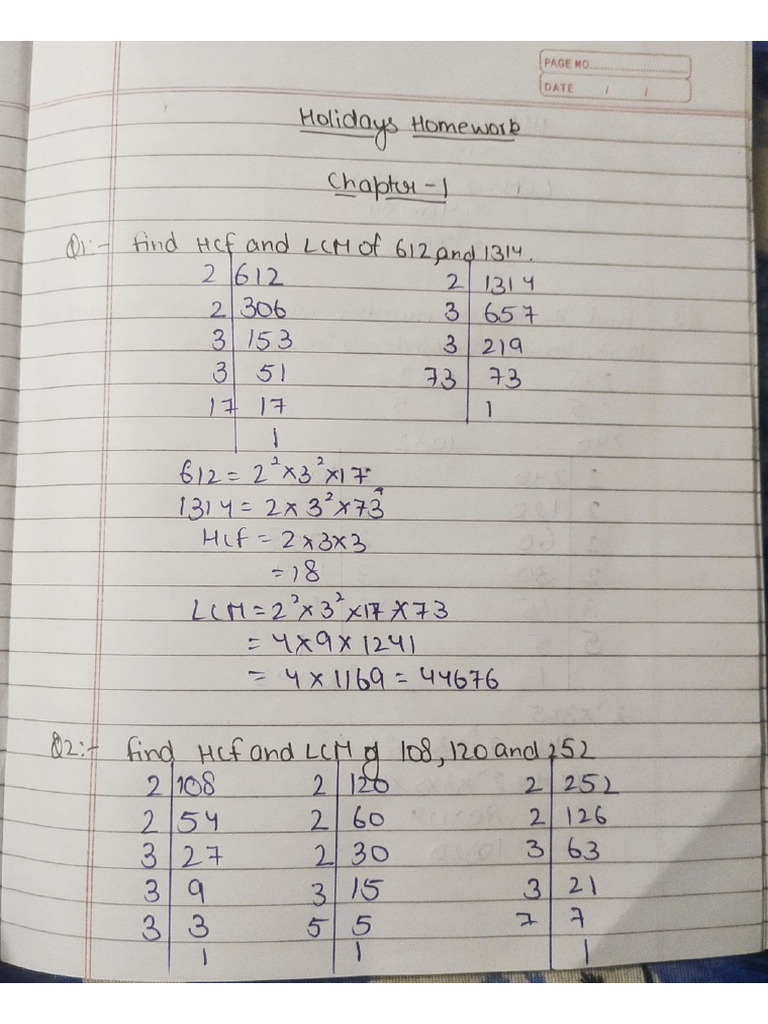 PAGE NO.
DATE / /
Holidays Homework
Chapter-1
Q1:- find HCF and LCM of 612, and 1314.
2 612 2 1314
2 306 3 657
3 153 3 219
3 51 73 73
17 17 1
1
612 = 2² × 3² × 17
1314 = 2 × 3² × 73
HCF = 2 × 3 × 3
= 18
LCM = 2² × 3² × 17 × 73
= 4 × 9 × 1241
= 4 × 1169 = 44676
Q2:- find HCF and LCM of 108, 120 and 252
2 108 2 120 2 252
2 54 2 60 2 126
3 27 2 30 3 63
3 9 3 15 3 21
3 3 5 5 7 7
1 1 1